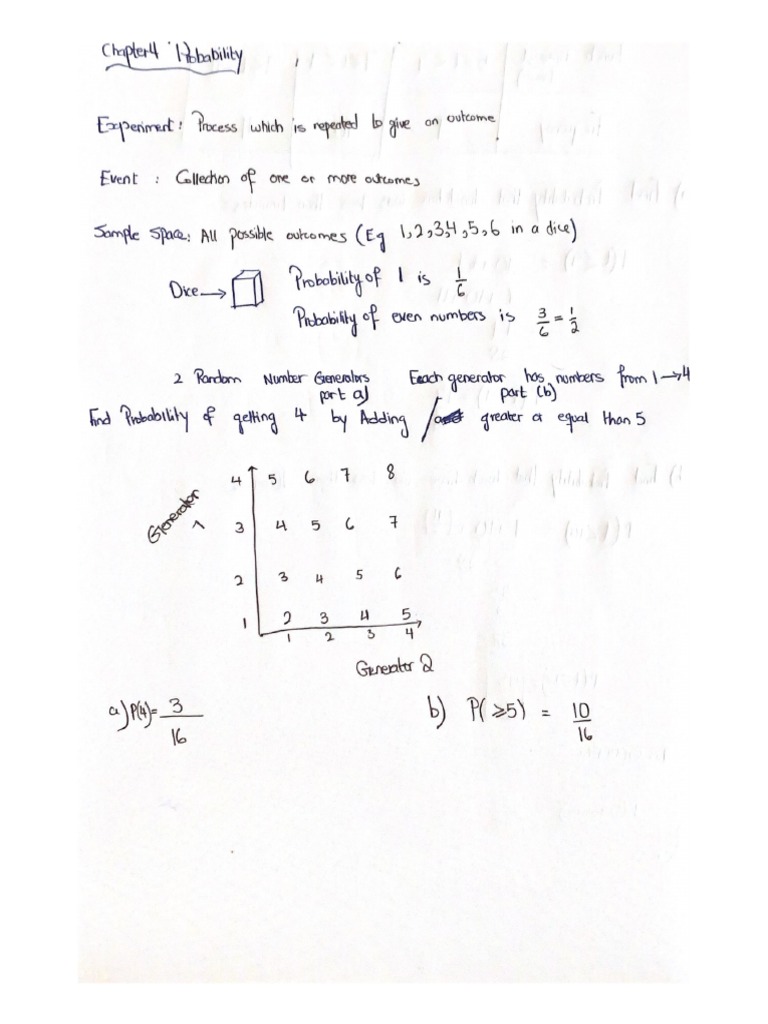 Chapter 4 Probability
Experiment: Process which is repeated to give an outcome
Event : Collection of one or more outcomes
Sample Space: All possible outcomes (Eg 1,2,3,4,5,6 in a dice)
Dice → Probability of 1 is 1/6
Probability of even numbers is 3/6 = 1/2
2 Random Number Generators Each generator has numbers from 1→4
part a) part (b)
Find Probability of getting 4 by Adding / greater or equal than 5
4 5 6 7 8
Generator 1
3 4 5 6 7
2 3 4 5 6
1 2 3 4 5
1 2 3 4
Generator 2
a) P(4) = 3/16 b) P(≥5) = 10/16